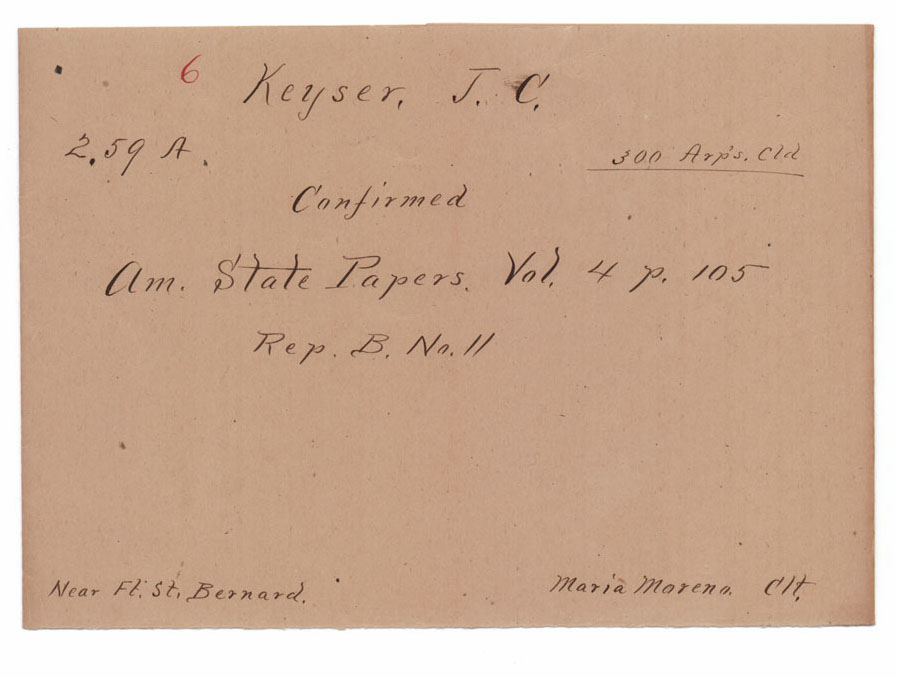 6 Keyser, J. C.
2.59 A. 300 Arps. Cld
Confirmed
Am. State Papers. Vol. 4 p. 105
Rep. B. No. 11
Near Ft. St. Bernard. Maria Moreno. Clt.